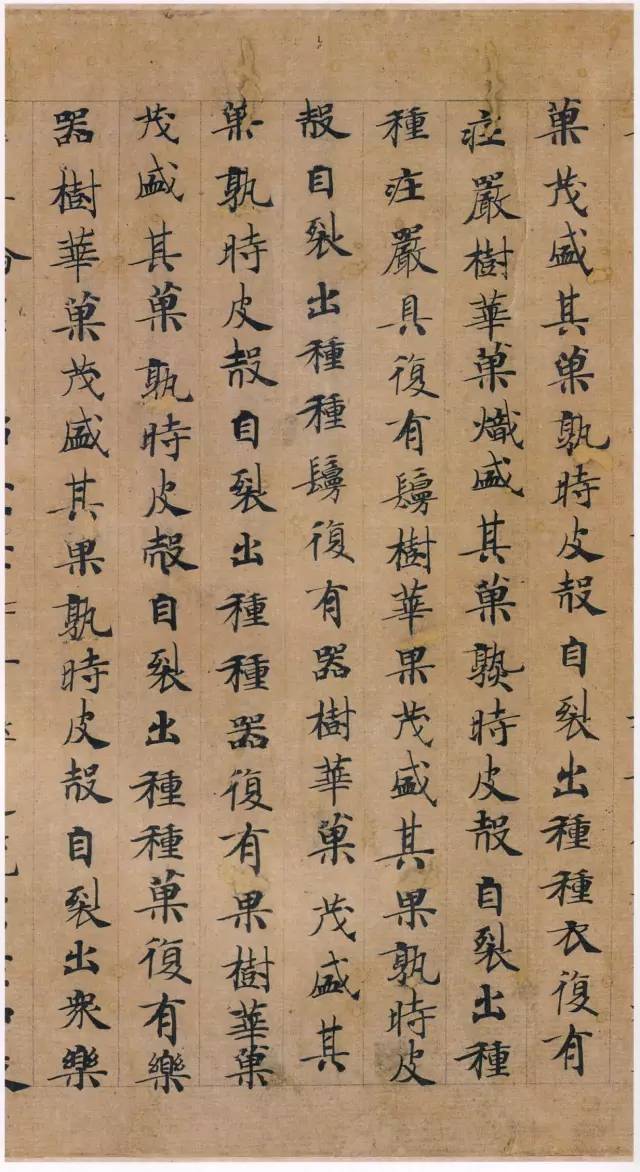 菓茂盛其菓孰時皮殻自裂出種種衣復有
㽵嚴樹華菓熾盛其菓熟時皮殻自裂出種
種㽵嚴具復有鬘樹華果茂盛其果孰時皮
殻自裂出種種鬘復有器樹華菓茂盛其
菓孰時皮殻自裂出種種器復有果樹華菓
茂盛其菓孰時皮殻自裂出種種菓復有樂
器樹華菓茂盛其果孰時皮殻自裂出衆樂